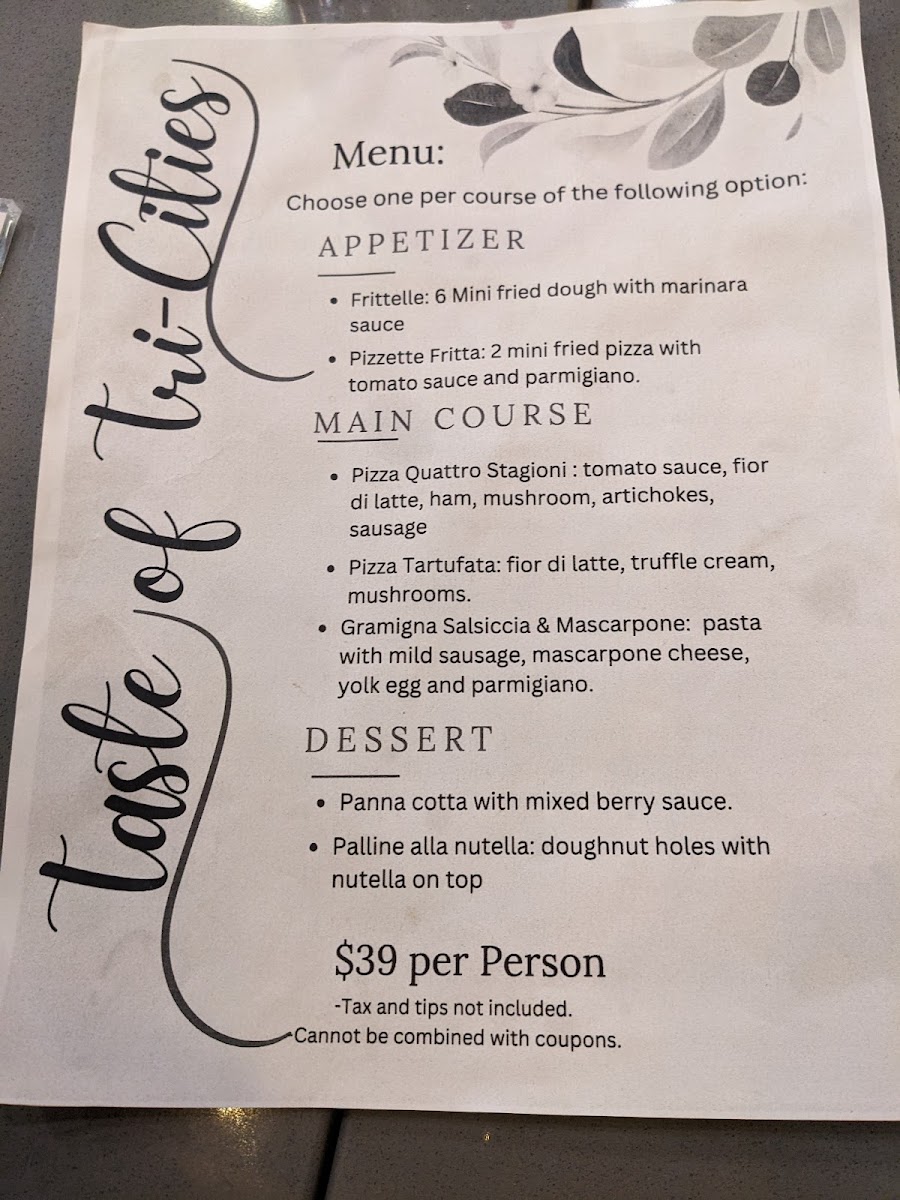 taste of tri-Cities
Menu:
Choose one per course of the following option:
APPETIZER
• Frittelle: 6 Mini fried dough with marinara
sauce
• Pizzette Fritta: 2 mini fried pizza with
tomato sauce and parmigiano.
MAIN COURSE
• Pizza Quattro Stagioni : tomato sauce, fior
di latte, ham, mushroom, artichokes,
sausage
• Pizza Tartufata: fior di latte, truffle cream,
mushrooms.
• Gramigna Salsiccia & Mascarpone: pasta
with mild sausage, mascarpone cheese,
yolk egg and parmigiano.
DESSERT
• Panna cotta with mixed berry sauce.
• Palline alla nutella: doughnut holes with
nutella on top
$39 per Person
-Tax and tips not included.
-Cannot be combined with coupons.